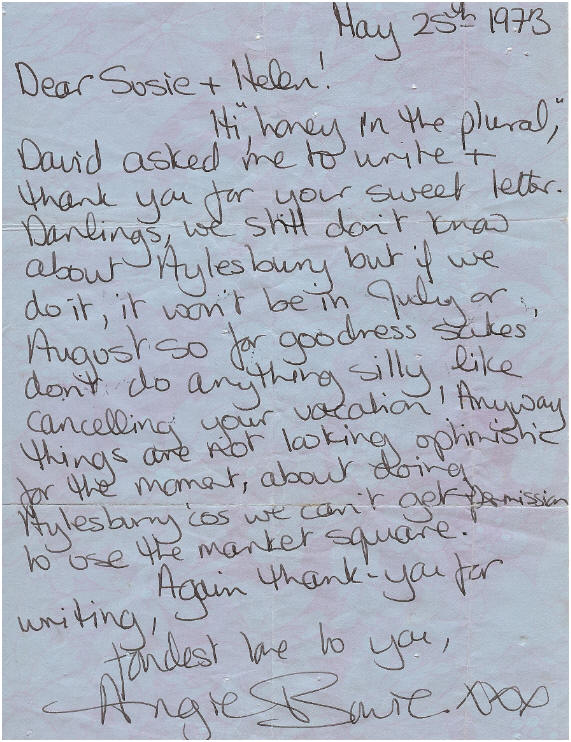 May 25th 1973
Dear Susie + Helen!
Hi "honey in the plural,"
David asked me to write +
thank you for your sweet letter.
Darlings, we still don't know
about Aylesbury but if we
do it, it won't be in July or
August so for goodness sakes,
don't do anything silly like
cancelling your vacation! Anyway
things are not looking optimistic
for the moment, about doing
Aylesbury 'cos we can't get permission
to use the market square.
Again thank-you for
writing,
fondest love to you,
Angie Bowie. xxx